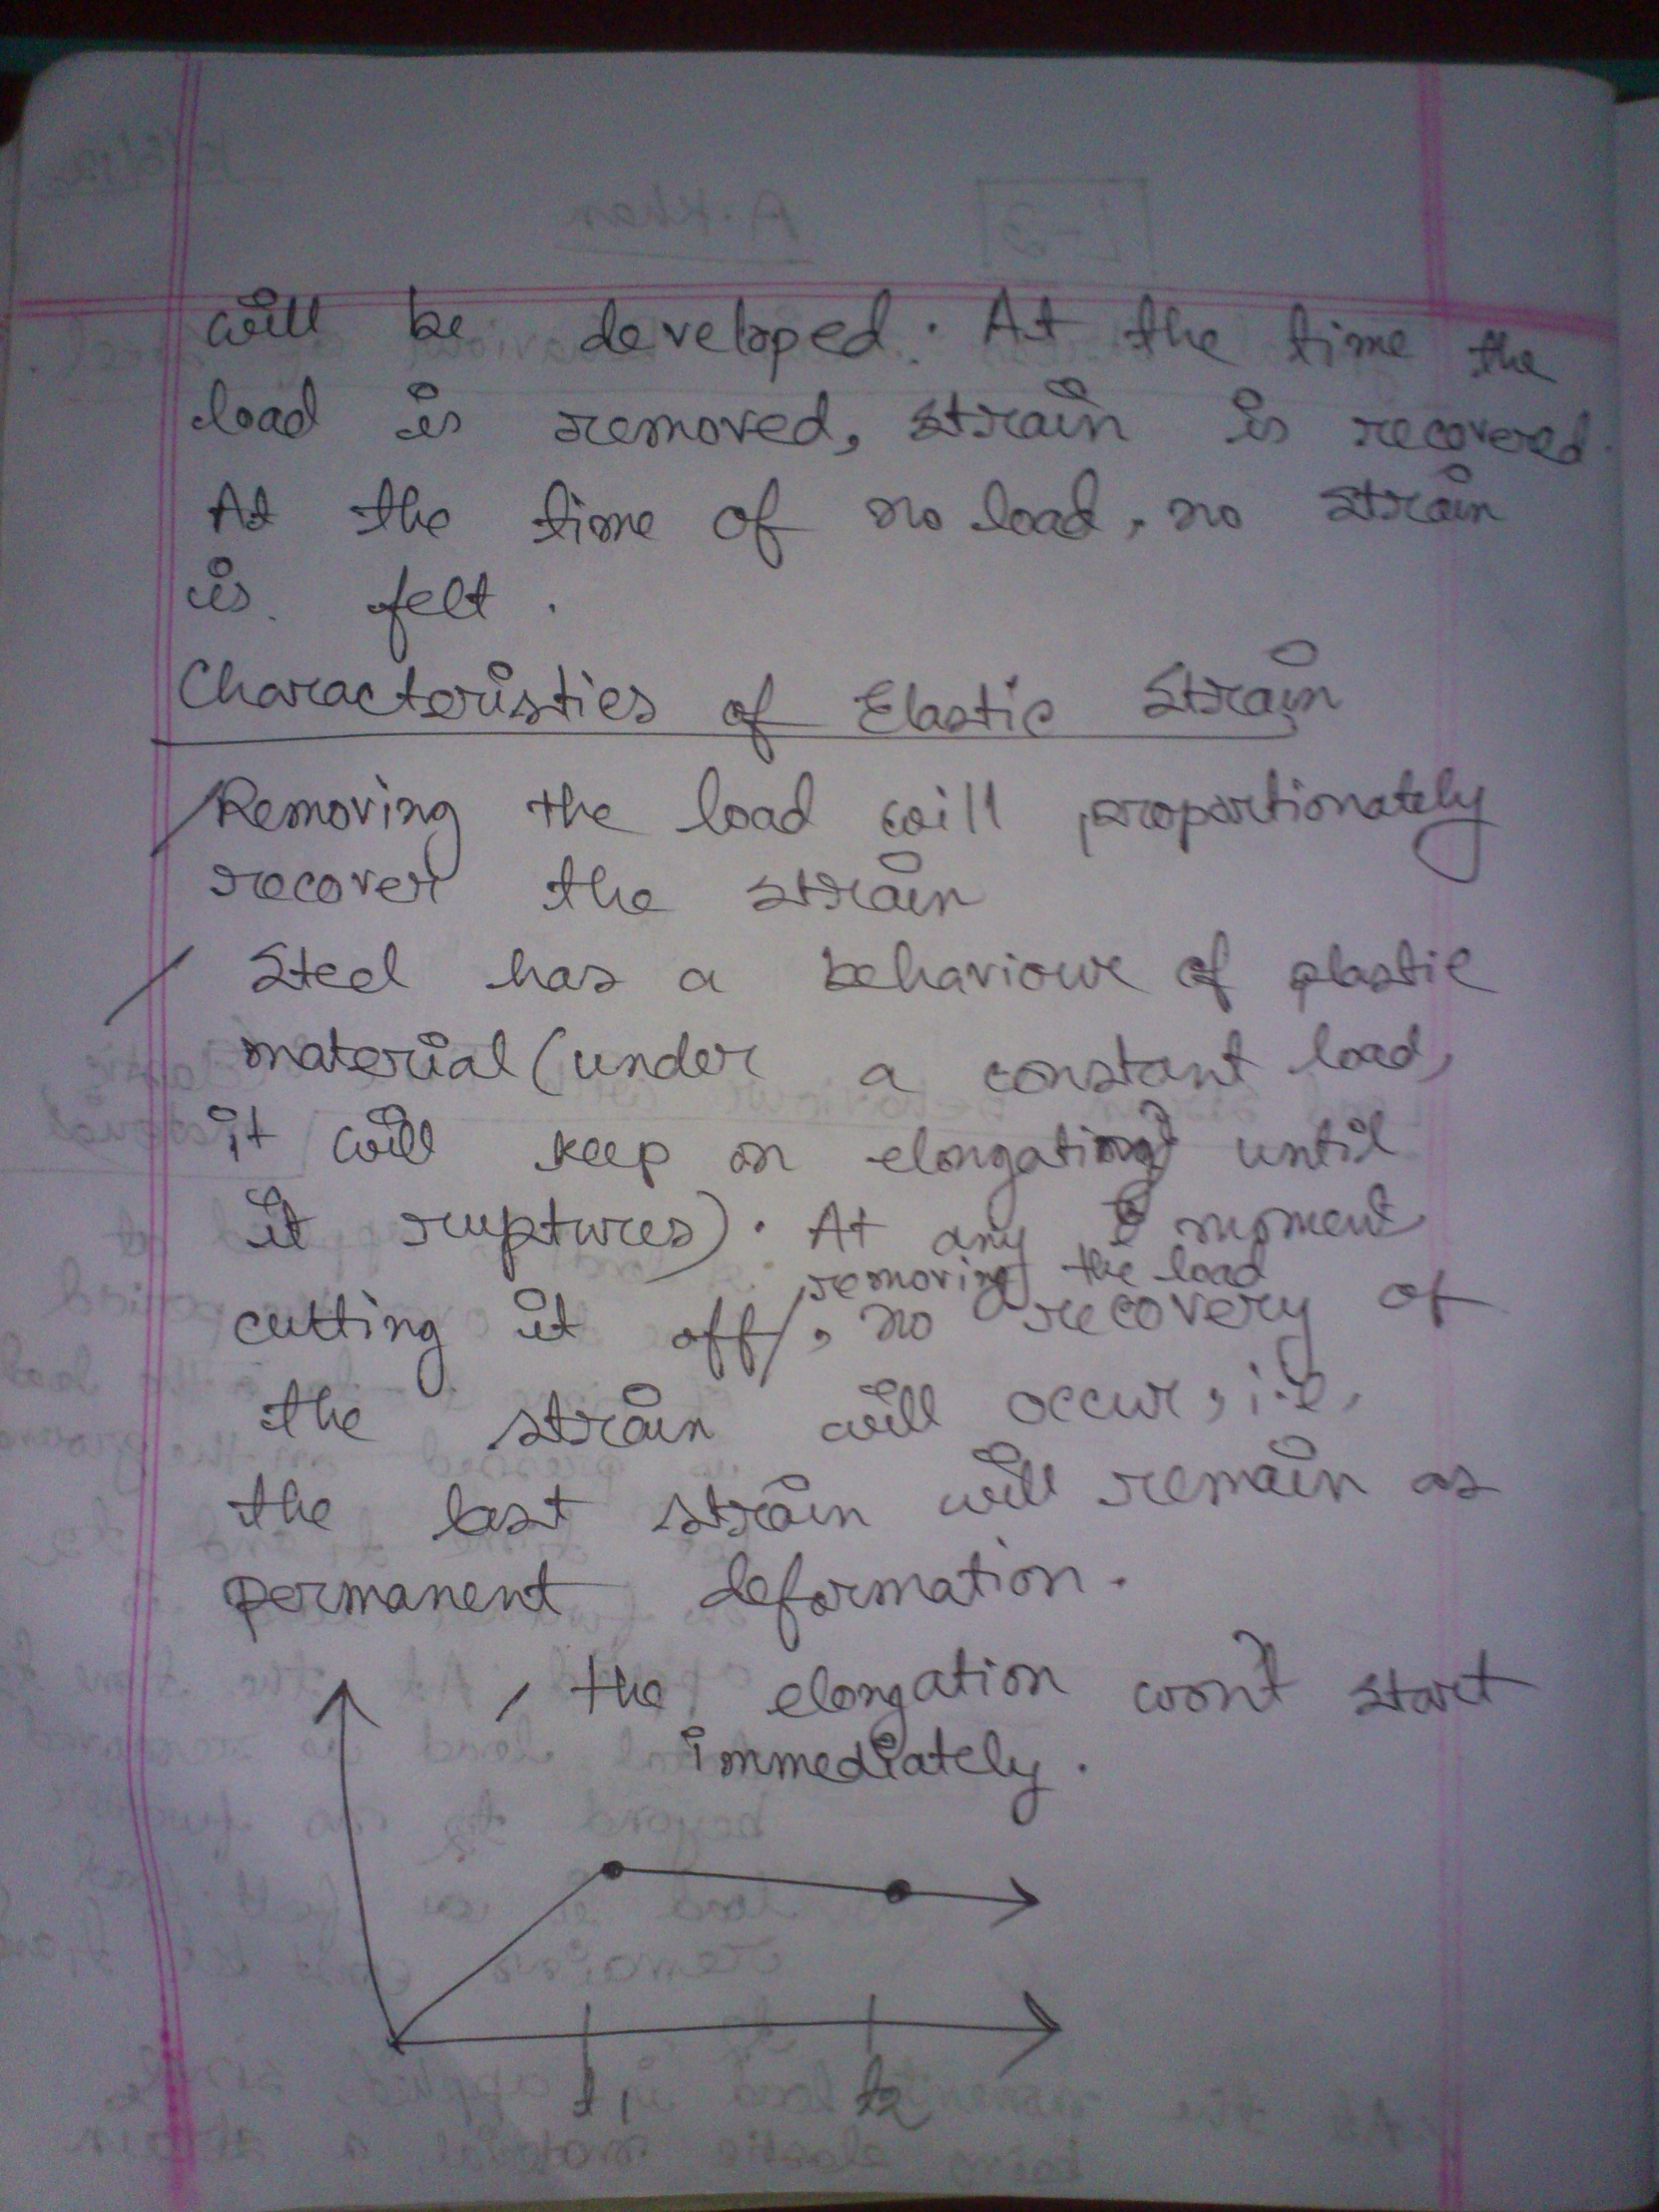 will be developed. At the time the
load is removed, strain is recovered.
At the time of no load, no strain
is felt.
Characteristics of Elastic Strain
Removing the load will proportionately
recover the strain
Steel has a behaviour of plastic
material (under a constant load,
it will keep on elongating until
it ruptures). At any moment
removing the load
cutting it off/, no recovery of
the strain will occur, i.e,
the last strain will remain as
permanent deformation.
the elongation won't start
immediately.
t1 t2